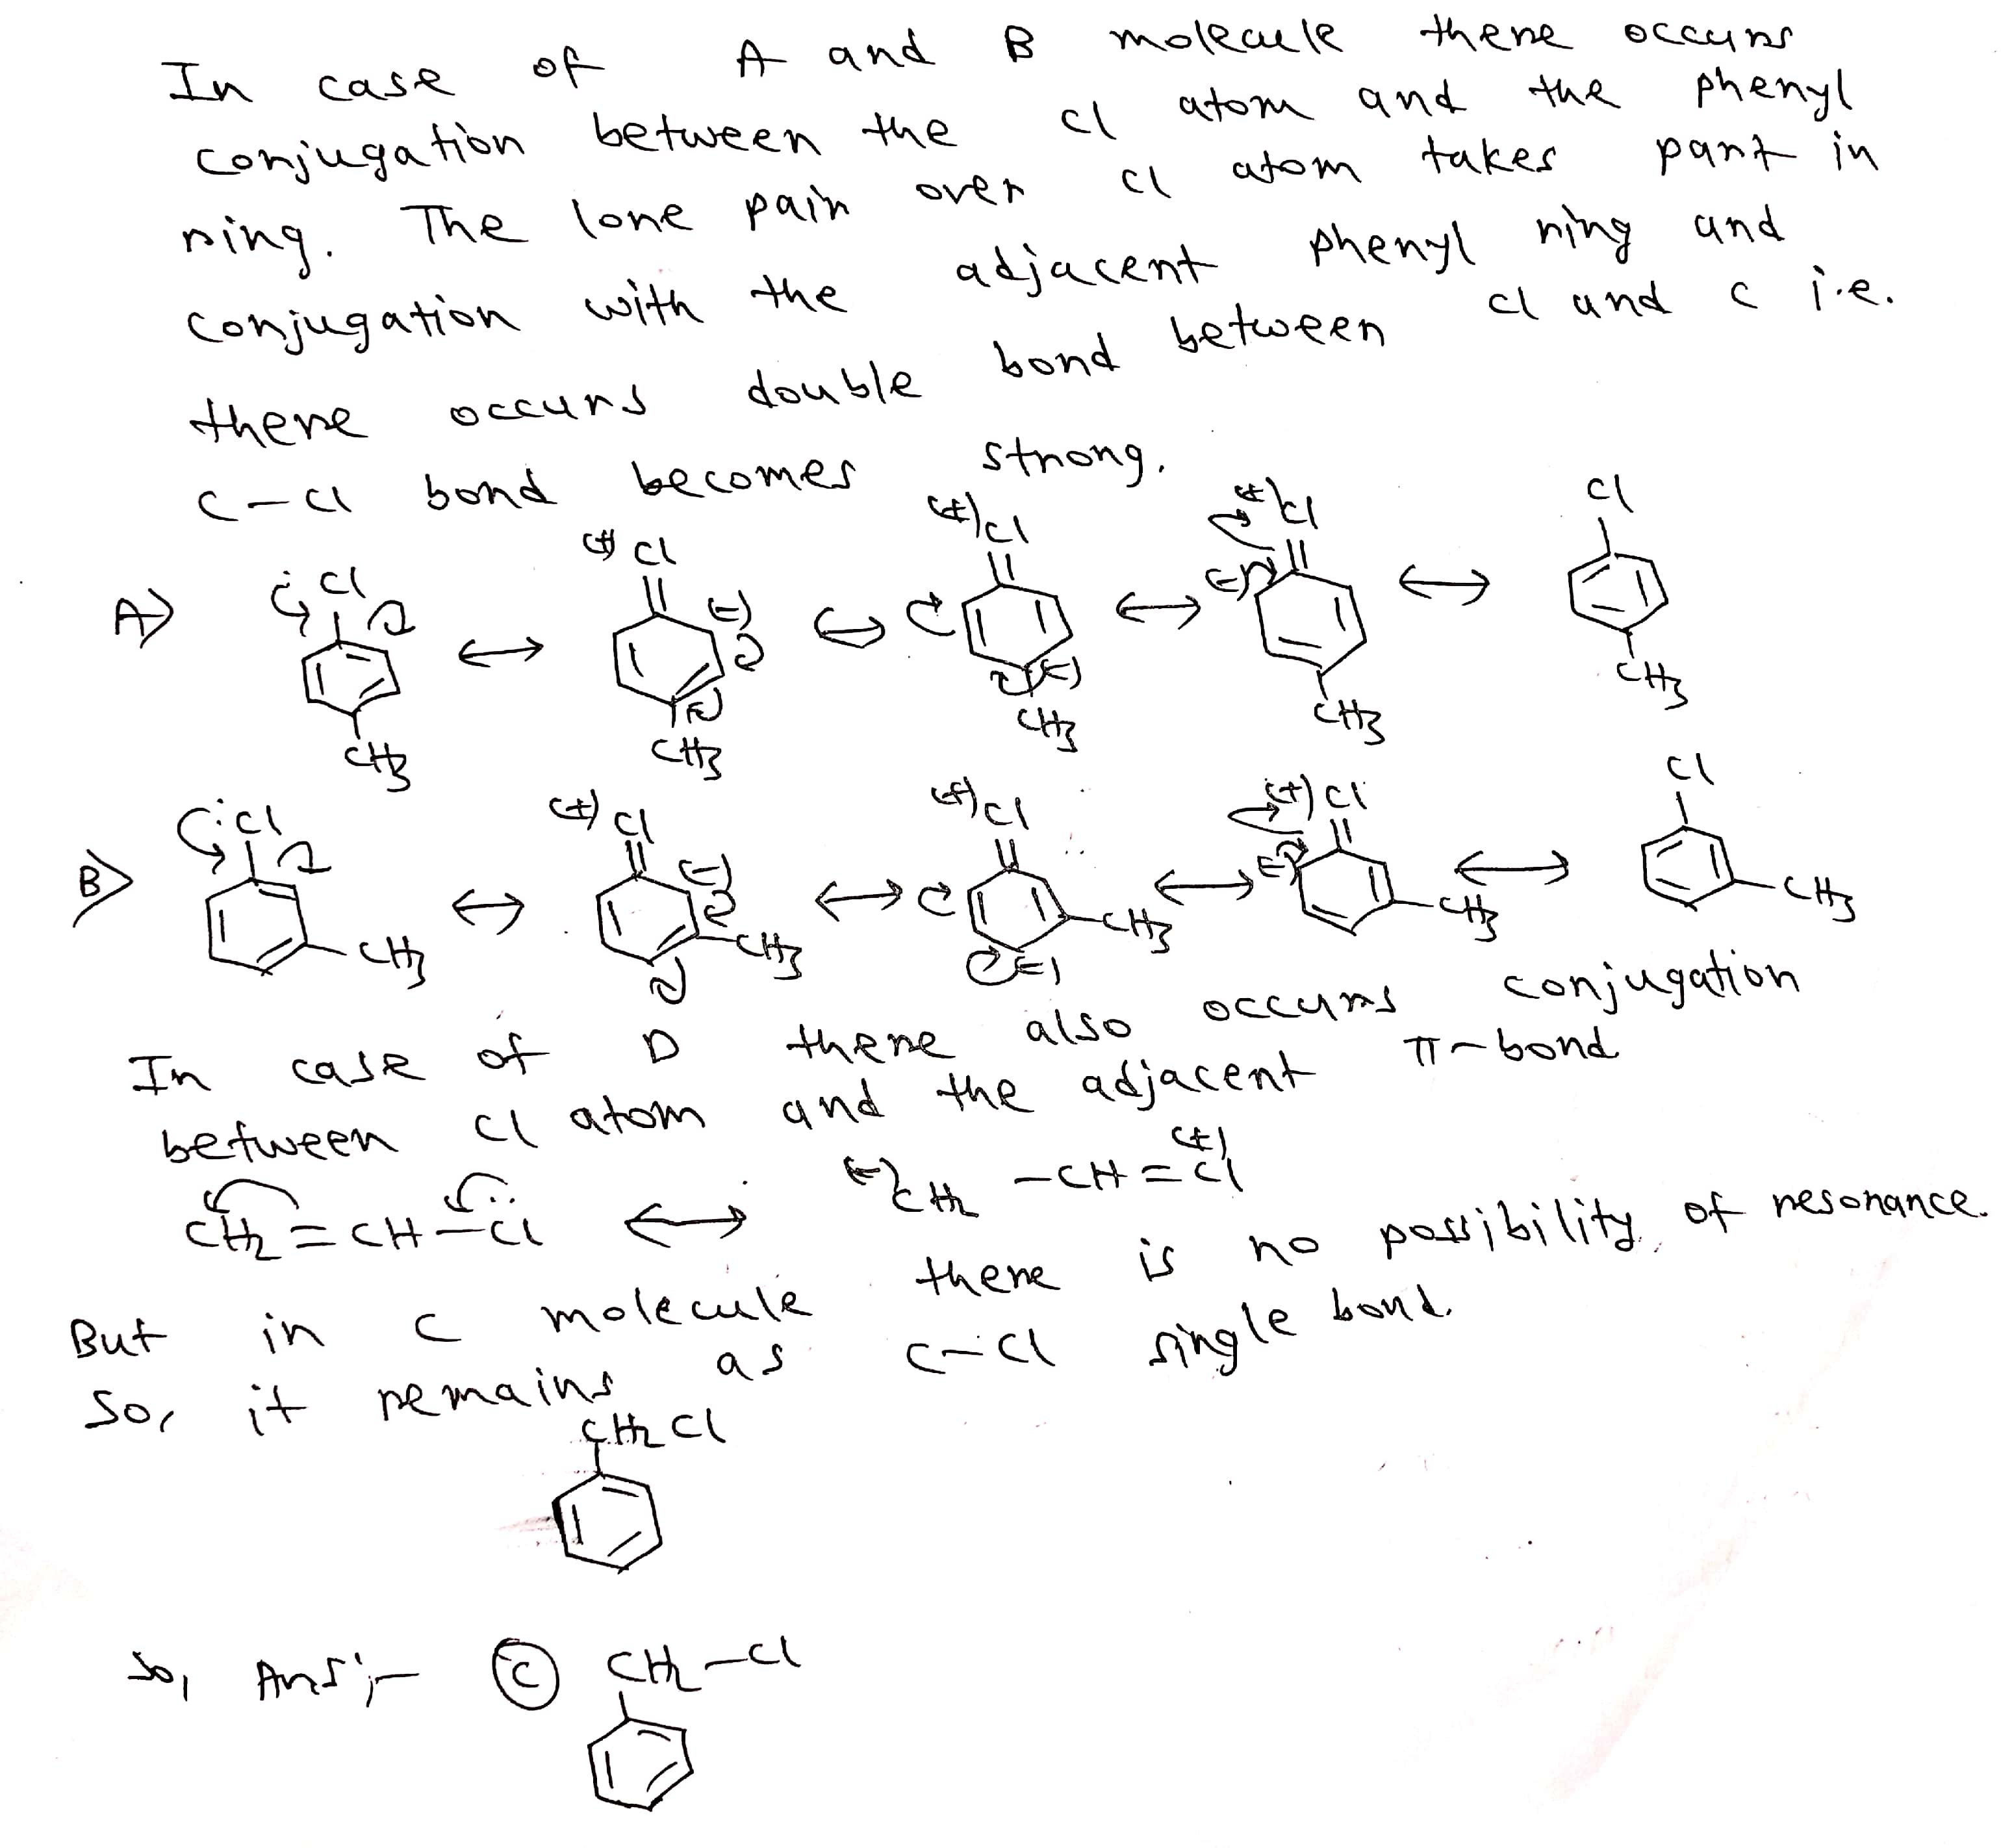 In case of A and B molecule there occurs
conjugation between the Cl atom and the phenyl
ring. The lone pair over Cl atom takes part in
conjugation with the adjacent phenyl ring and
there occurs double bond between Cl and C i.e.
C-Cl bond becomes strong.
A) :Cl CH3 ↔ (+) Cl (-) CH3 ↔ (+) Cl (-) CH3 ↔ (+) Cl (-) CH3 ↔ Cl CH3
B) :Cl CH3 ↔ (+) Cl (-) CH3 ↔ (+) Cl (-) CH3 ↔ (+) Cl (-) CH3 ↔ Cl CH3
In case of D there also occurs conjugation
between Cl atom and the adjacent π-bond
CH2=CH-Cl ↔ (-)CH2-CH=Cl(+)
But in C molecule there is no possibility of resonance.
So, it remains as C-Cl single bond.
CH2Cl
So, Ans:- (C) CH2-Cl